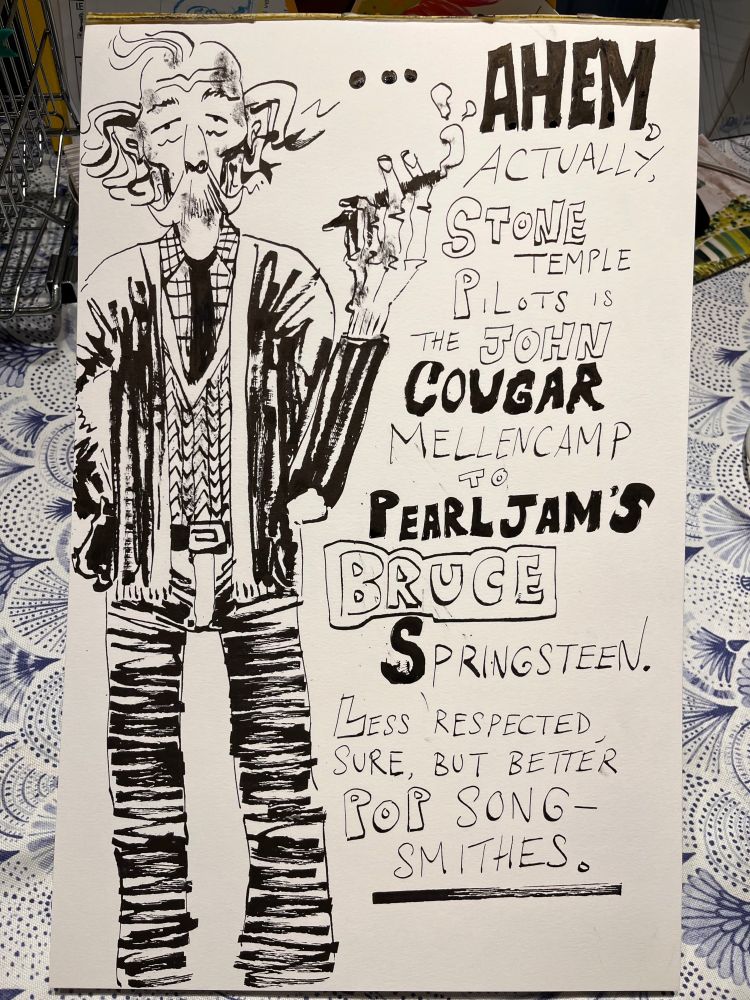 ... AHEM,
ACTUALLY,
STONE
TEMPLE
PILOTS IS
THE JOHN
COUGAR
MELLENCAMP
TO
PEARL JAM'S
BRUCE
SPRINGSTEEN.
LESS RESPECTED,
SURE, BUT BETTER
POP SONG-
SMITHES.